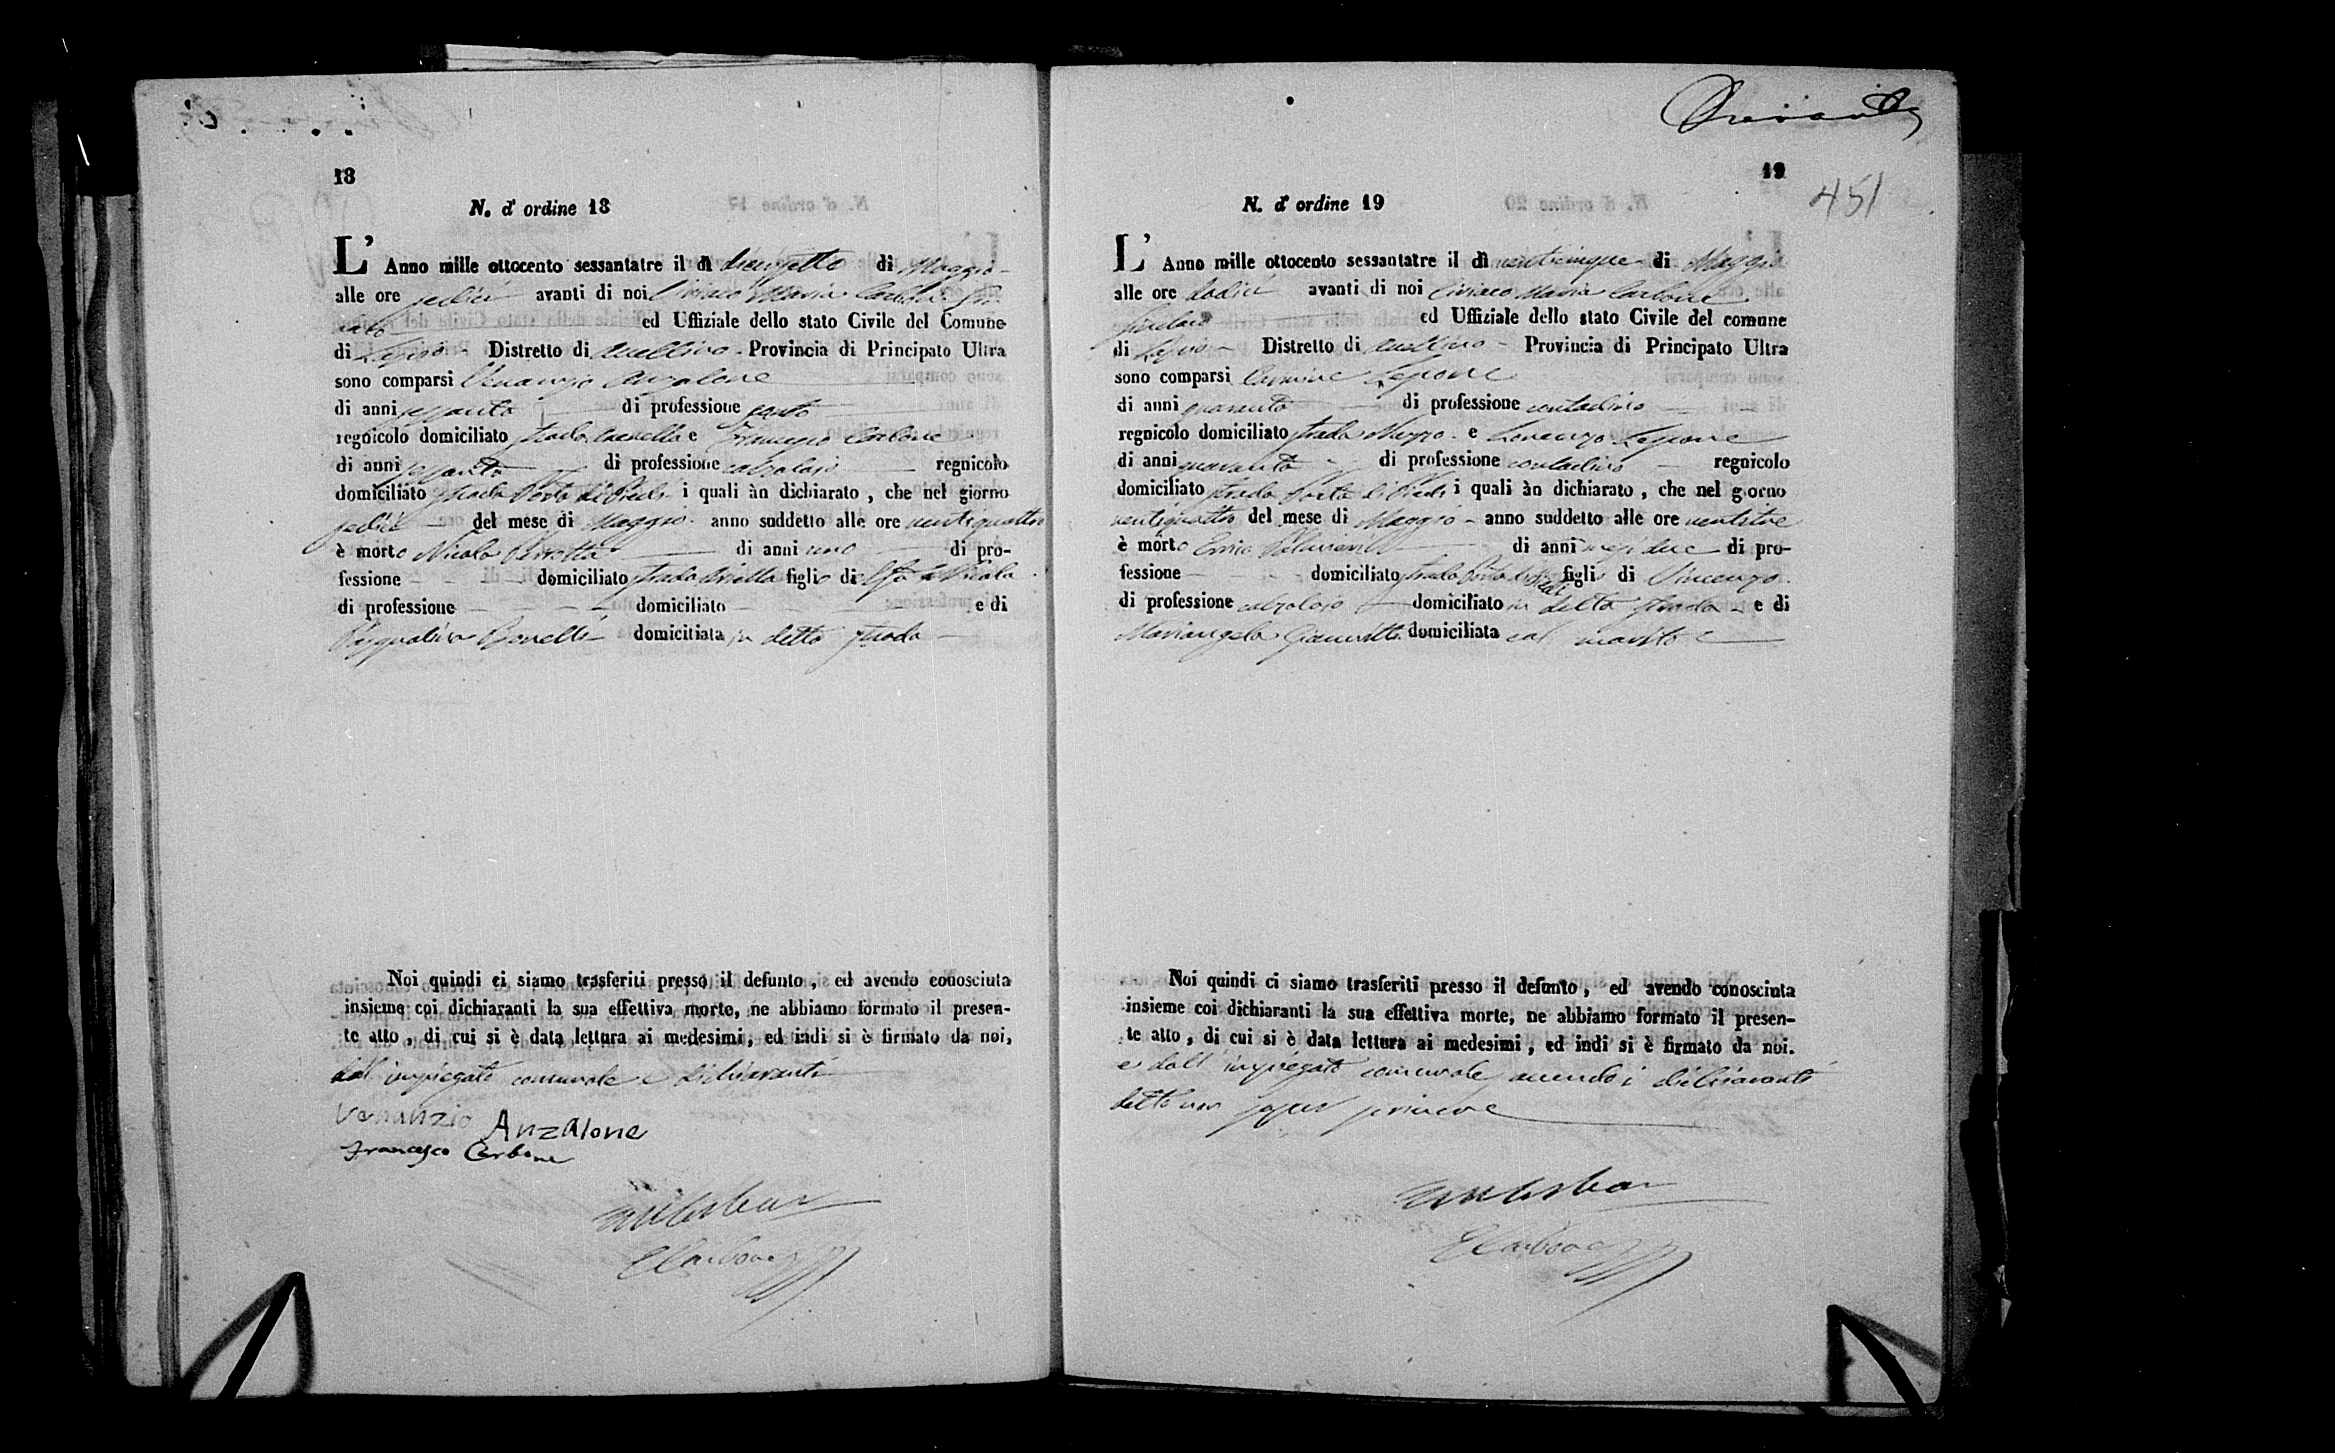 18
N. d' ordine 18
L' Anno mille ottocento sessantatre il dì diecisette di Maggio
alle ore sedici avanti di noi Ciriaco Maria Carbone Sin
daco ed Uffiziale dello stato Civile del Comune
di Distretto di Avellino Provincia di Principato Ultra
sono comparsi Venanzio Anzalone
di anni sessanta di professione sarto
regnicolo domiciliato strada e Francesco Carbone
di anni sessanta di professione calzolaio regnicolo
domiciliato strada Porta di Piedi i quali àn dichiarato , che nel giorno
sedici del mese di Maggio anno suddetto alle ore ventiquattro
è morto Nicola Perrotta di anni uno di pro-
fessione domiciliato strada figlio di Nicola
di professione domiciliato e di
Pasqualina Bonelli domiciliata in detta strada
Noi quindi ci siamo trasferiti presso il defunto , ed avendo conosciuta
insieme coi dichiaranti la sua effettiva morte, ne abbiamo formato il presen-
te atto , di cui si è data lettura ai medesimi, ed indi si è firmato da noi,
dall' impiegato comunale e dichiaranti
Venanzio Anzalone
Francesco Carbone
CCarbone
19
451
N. d' ordine 19
L' Anno mille ottocento sessantatre il dì venticinque di Maggio
alle ore dodici avanti di noi Ciriaco Maria Carbone
Sindaco ed Uffiziale dello stato Civile del comune
di Distretto di Avellino Provincia di Principato Ultra
sono comparsi Carmine Lepore
di anni quaranta di professione contadino
regnicolo domiciliato strada Mezzo e Lorenzo Lepore
di anni quaranta di professione contadino regnicolo
domiciliato strada Porta di Piedi i quali àn dichiarato , che nel giorno
ventiquattro del mese di Maggio anno suddetto alle ore ventitre
è morto Errico di anni mesi due di pro-
fessione domiciliato strada Porta di Piedi figlio di Vincenzo
di professione calzolaio domiciliato in detta strada e di
Mariangela domiciliata col marito
Noi quindi ci siamo trasferiti presso il defunto , ed avendo conosciuta
insieme coi dichiaranti la sua effettiva morte, ne abbiamo formato il presen-
te atto , di cui si è data lettura ai medesimi , ed indi si è firmato da noi.
e dall' impiegato comunale, avendo i dichiaranti
detto non saper scrivere
CCarbone